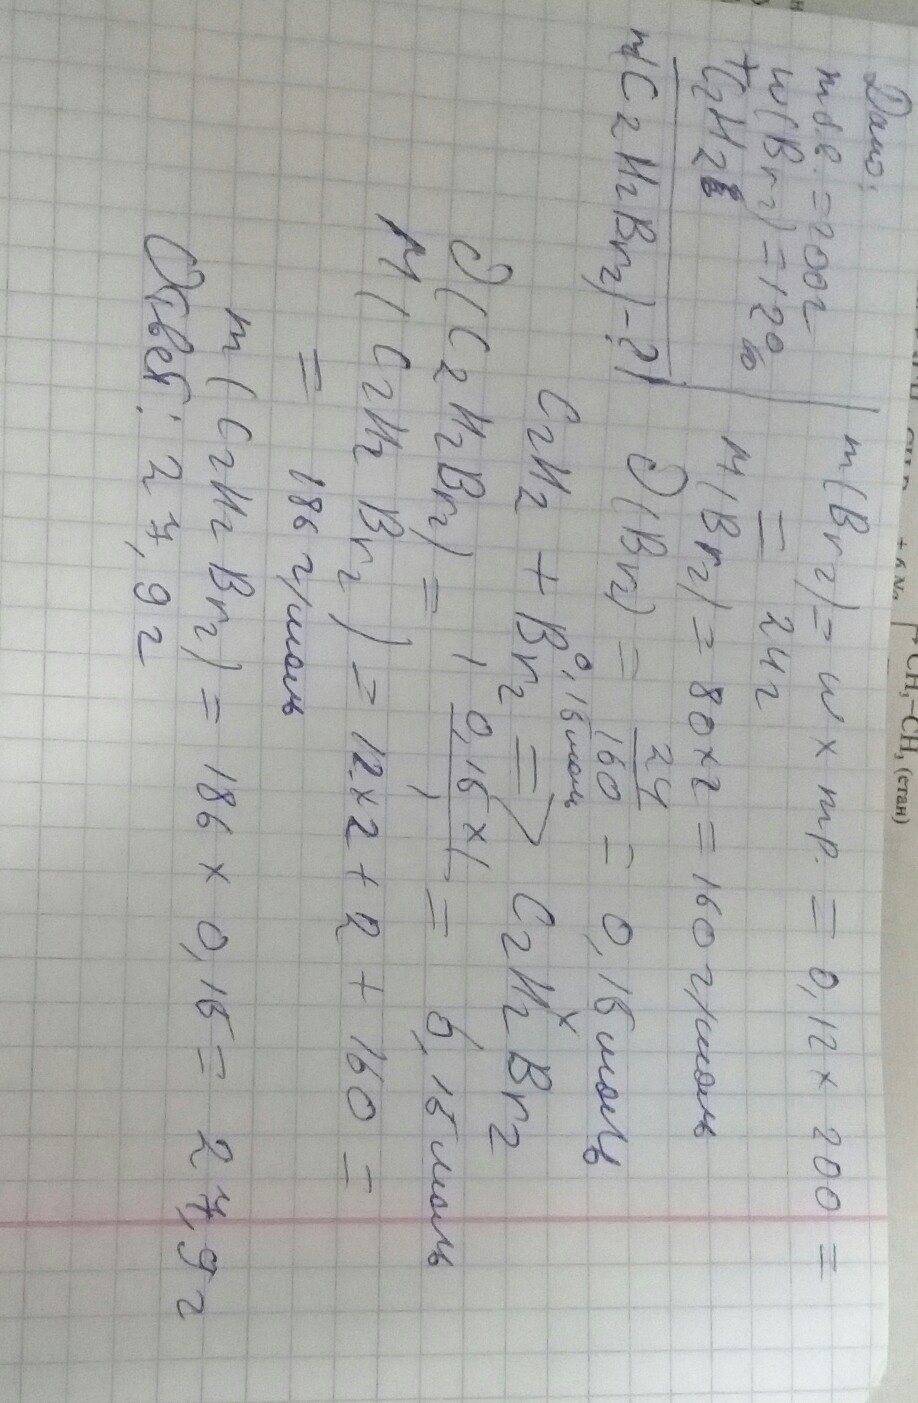 Дано:
mб.в. = 200г
w(Br2) = 12%
+C2H2
m(C2H2Br2) - ?
m(Br2) = w × mр. = 0,12 × 200 =
= 24г
M(Br2) = 80×2 = 160 г/моль
∂(Br2) = 24/160 = 0,15 моль
0,15 моль x
C2H2 + Br2 => C2H2Br2
1 1
∂(C2H2Br2) = 0,15 × 1 = 0,15 моль
M(C2H2Br2) = 12×2 + 2 + 160 =
= 186 г/моль
m(C2H2Br2) = 186 × 0,15 = 27,9г
Ответ: 27,9г
CH3-CH3 (етан)